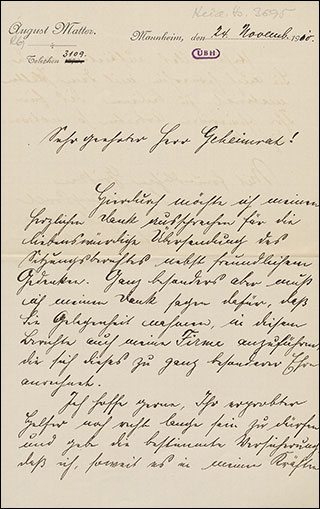 Heid. Hs. 3695
August Matter.
Telephon 3109.
Mannheim, den 24. Novemb. 1910.
UBH
Sehr geehrter Herr Geheimrat!
Hierdurch möchte ich meinen
herzlichen Dank aussprechen für die
liebenswürdige Übersendung des
Sitzungsberichtes nebst freundlichem
Gedenken. Ganz besonders aber muß
ich meinen Dank sagen dafür, daß
Sie Gelegenheit nahmen, in diesem
Berichte auch meine Firma anzuführen,
die sich dieses zu ganz besonderer Ehre
anrechnet.
Ich hoffe gerne, Ihr erprobter
Helfer noch recht lange sein zu dürfen
und gebe die bestimmte Versicherung,
daß ich, soweit es in meinen Kräften